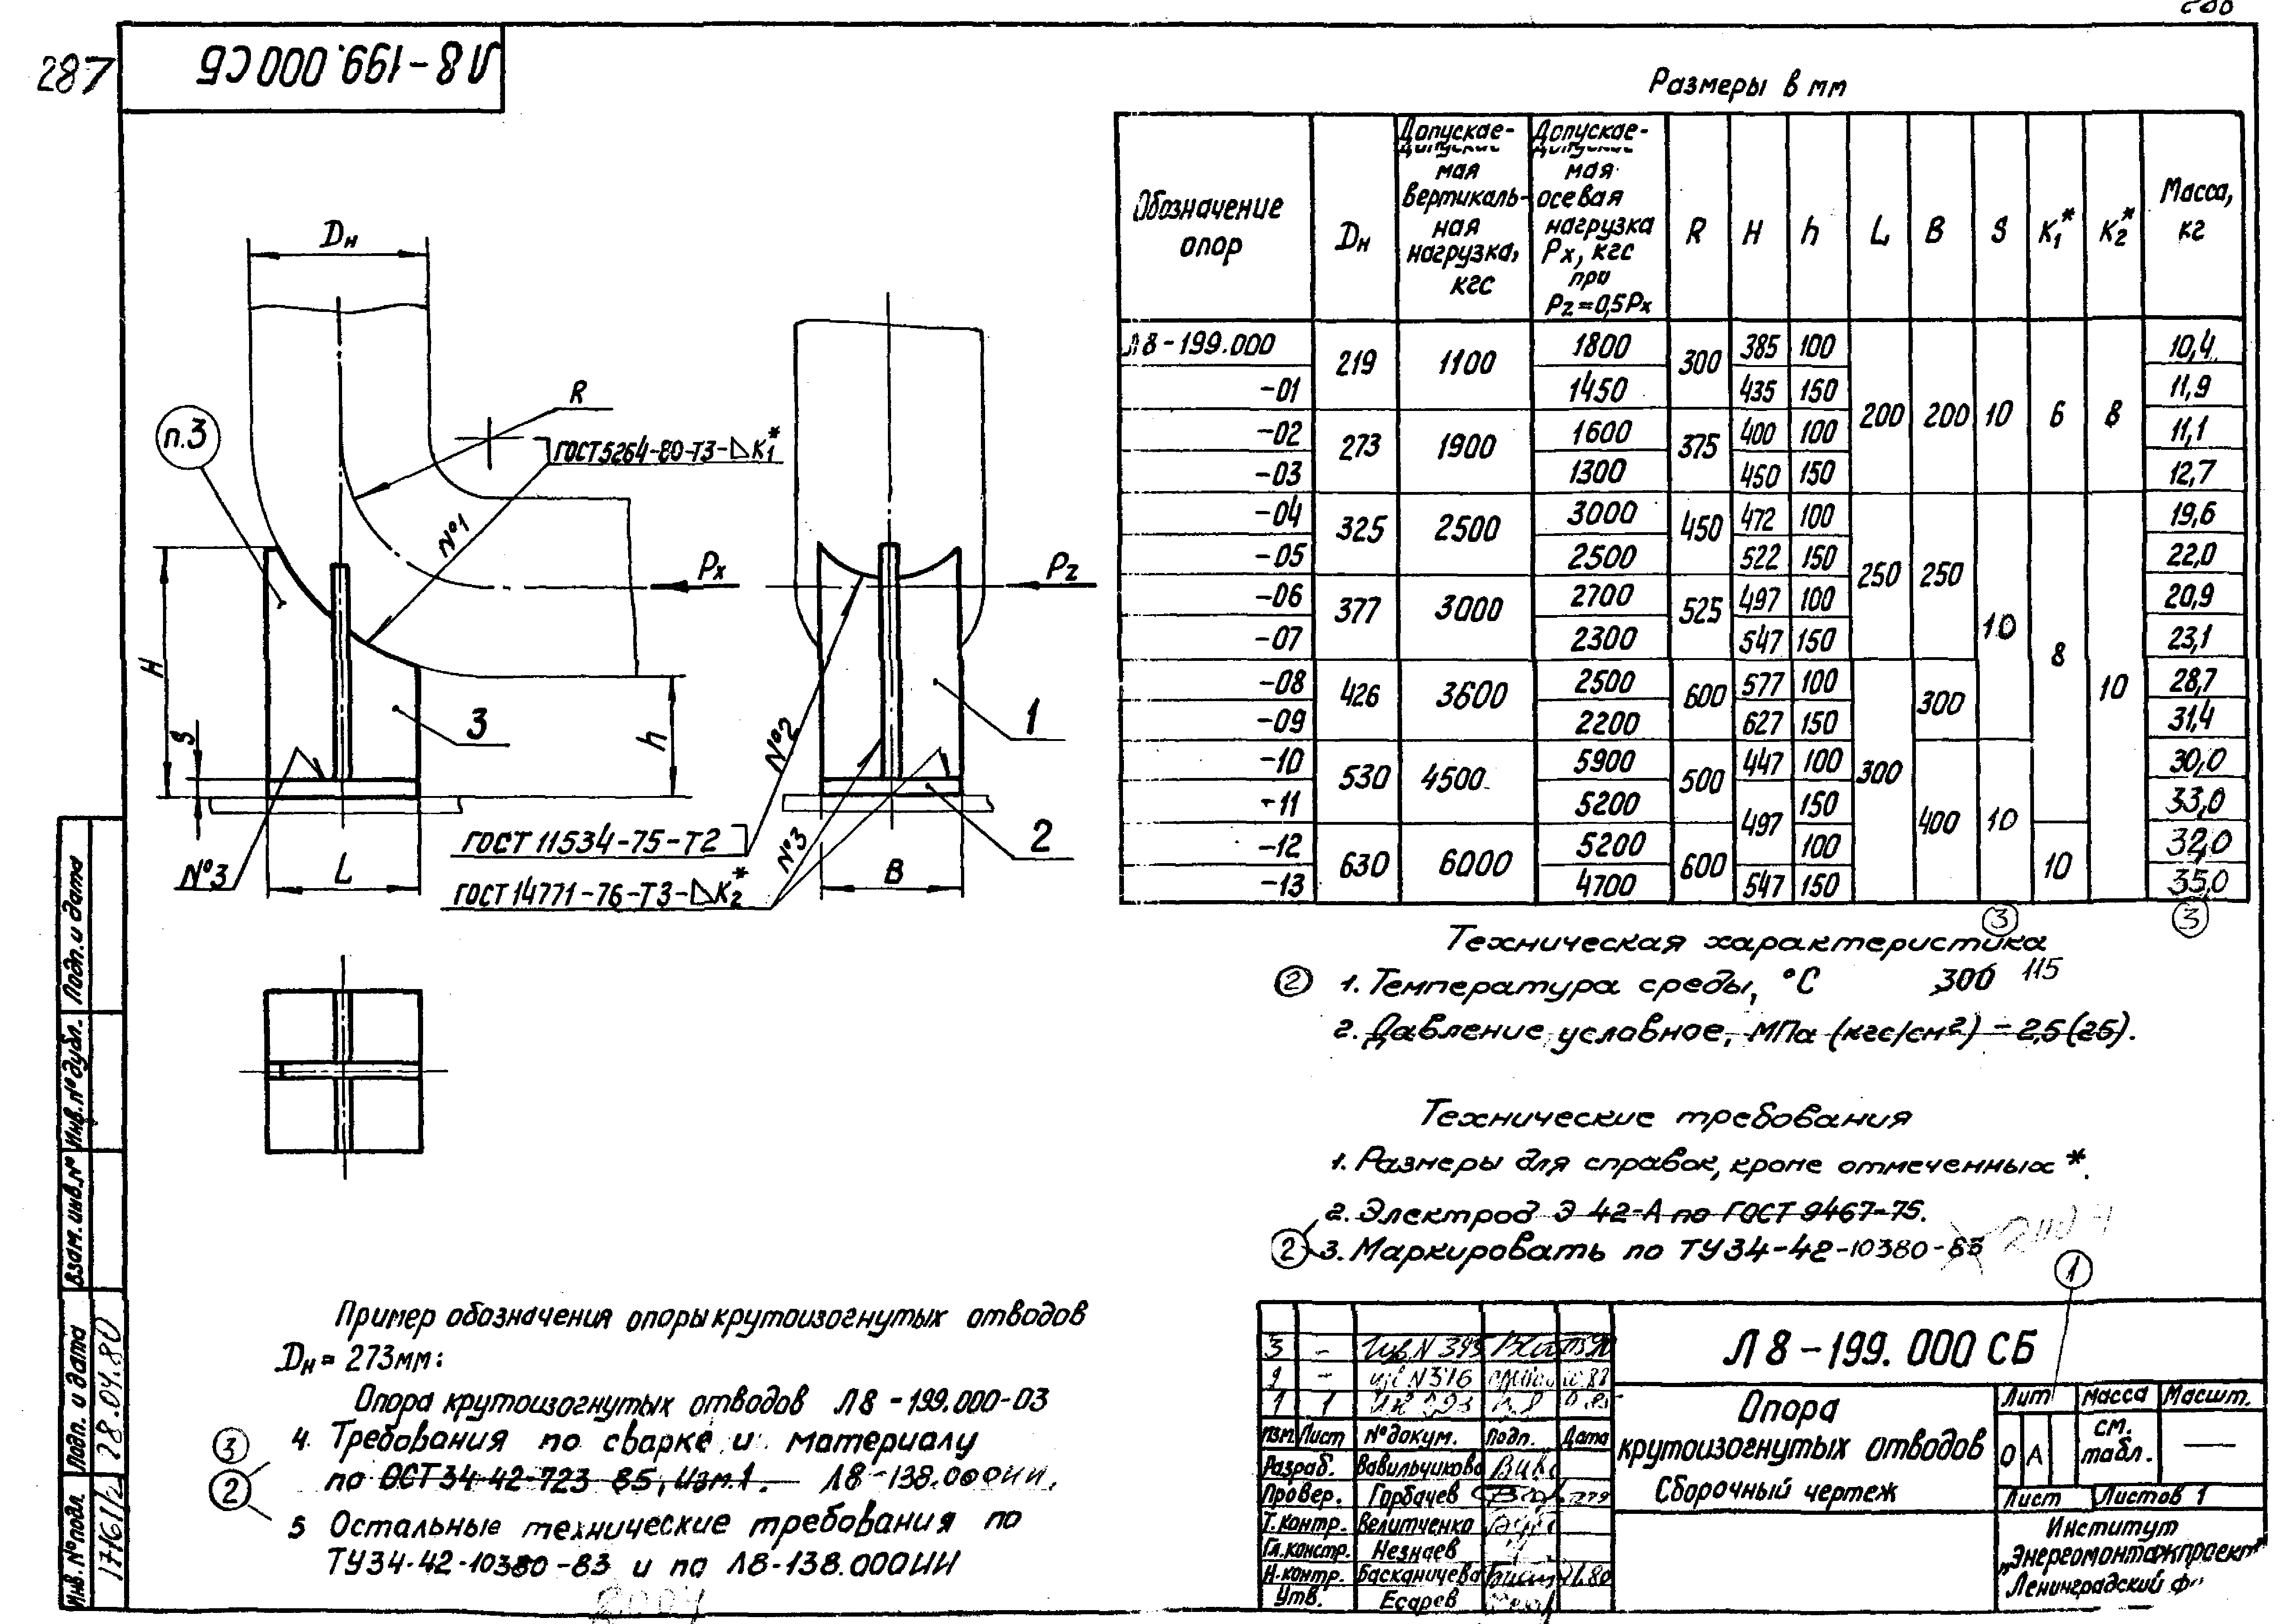 287
Л8-199.000 СБ
Размеры в мм
Dн
R
п.3
ГОСТ 5264-80-Т3-△K₁*
№1
H
S
3
№3
L
h
Px
Pz
№2
№3
1
2
B
ГОСТ 11534-75-Т2
ГОСТ 14771-76-Т3-△K₂*
Обозначение опор | Dн | Допускаемая вертикальная нагрузка, кгс | Допускаемая осевая нагрузка Px, кгс при Pz=0,5Px | R | H | h | L | B | S | K₁* | K₂* | Масса, кг
Л8-199.000 219 1100 1800 300 385 100 200 200 10 6 8 10,4
-01 1450 435 150 11,9
-02 273 1900 1600 375 400 100 11,1
-03 1300 450 150 12,7
-04 325 2500 3000 450 472 100 250 250 10 8 10 19,6
-05 2500 522 150 22,0
-06 377 3000 2700 525 497 100 20,9
-07 2300 547 150 23,1
-08 426 3600 2500 600 577 100 300 300 28,7
-09 2200 627 150 31,4
-10 530 4500 5900 500 447 100 400 10 30,0
-11 5200 497 150 33,0
-12 630 6000 5200 600 100 10 32,0
-13 4700 547 150 35,0
3 3
Техническая характеристика
2 1. Температура среды, °С 300 115
2. Давление условное, МПа (кгс/см²) - 2,5(25).
Технические требования
1. Размеры для справок, кроме отмеченных *.
2. Электрод Э 42-А по ГОСТ 9467-75.
2 3. Маркировать по ТУ34-42-10380-83
1
Пример обозначения опоры крутоизогнутых отводов
Dн = 273мм:
Опора крутоизогнутых отводов Л8-199.000-03
3 4. Требования по сварке и материалу
2 по ОСТ 34-42-723 85, Изм.1. Л8-138.000ИИ.
5 Остальные технические требования по
ТУ34-42-10380-83 и по Л8-138.000ИИ
3 -
-
1 1
Изм. Лист №докум. Подп. Дата
Разраб.
Провер. Горбачев
Т.контр. Велитченко
Гл.констр. Незнаев
Н.контр. Басканичева
Утв. Есарев
Л8-199.000 СБ
Опора
крутоизогнутых отводов
Сборочный чертеж
Лит Масса Масшт.
О А см. табл. —
Лист Листов 1
Институт
„Энергомонтажпроект"
Ленинградский
Инв.№подл. Подп. и дата Взам.инв.№ Инв.№дубл. Подп. и дата
28.04.80